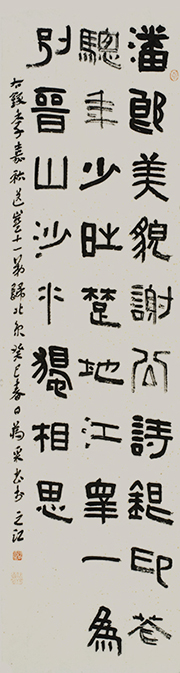 潘郎美貌謝公詩銀印花
驄年少時楚地江皋一為
別晉山沙水獨相思
右錄李嘉祐送崔十一弟歸北京癸巳春日書之江